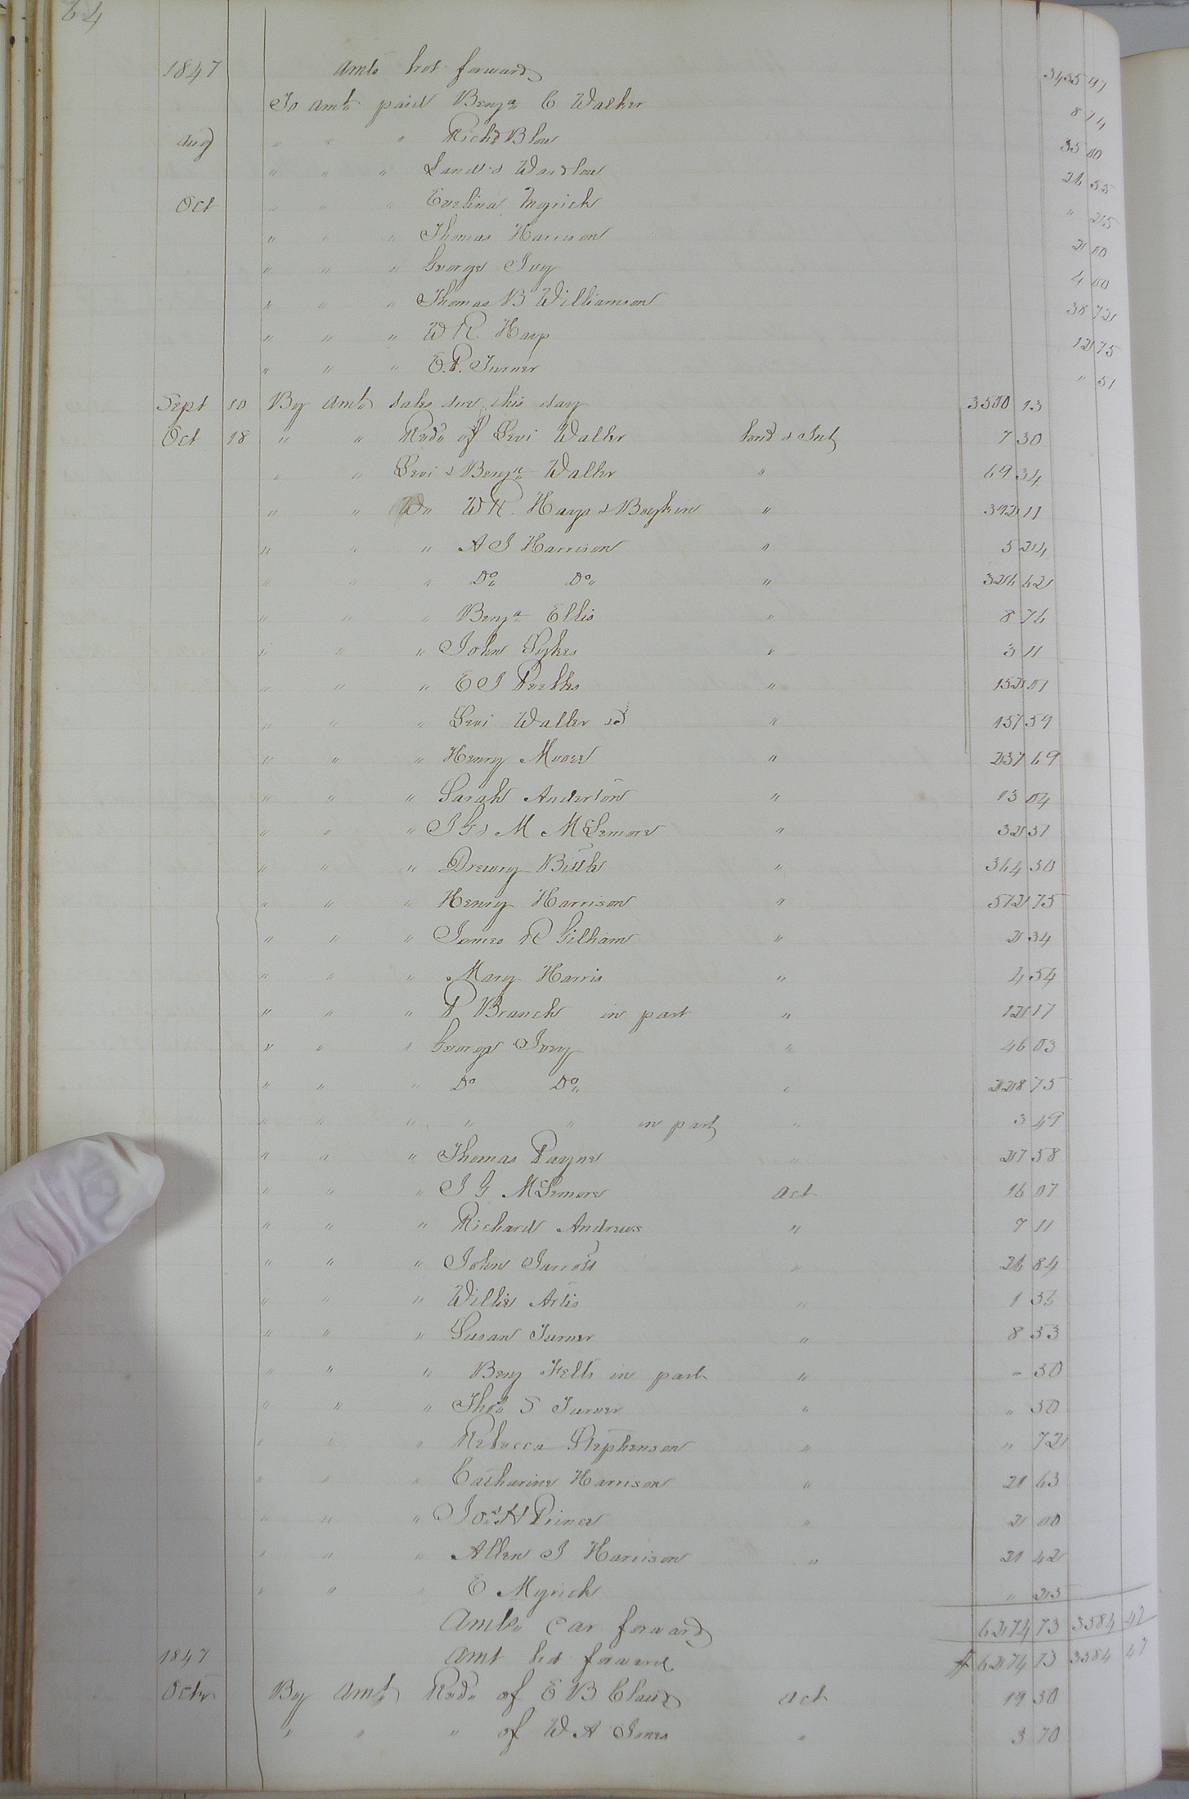 64
1847 Amto brot forward 3435 97
To Amto paid Benja C Waller 8 14
Aug " " " Richd Blow 35 00
" " " & Wardlow 26 55
Oct " " " Evelina Myrick " 25
" " " Thomas Harrison 2 00
" " " George Ivy 4 00
" " " Thomas B Williamson 38 72
" " " W R. Harp 12 75
" " " E. P. Turner " 51
Sept 10 By Amto Sales due this day 3500 13
Oct 18 " " Recd of Levi Waller bond & Int 7 30
" " Levi & Benja Waller " 69 34
" " W R. Harp & Boykin " 392 11
" " " A J Harrison " 5 24
" " " Do Do " 326 62
" " " Benja Ellis " 8 76
" " " John Sykes " 3 11
" " " E J " 152 01
" " " Levi Waller sd " 157 59
" " " Henry Moore " 237 69
" " " Sarah Anderton " 13 04
" " " J G & M McLemore " 32 51
" " " Drewry " 364 50
" " " Henry Harrison " 572 75
" " " James R Gilliam " 2 34
" " " Mary Harris " 4 54
" " " P Branch in part " 12 17
" " " George Ivey " 46 03
" " " Do Do " 228 75
" " " " " in part " 3 49
" " " Thomas Payne " 27 58
" " " J G. McLemore Act 16 07
" " " Richard Andrews " 7 11
" " " John Jarrott " 26 84
" " " Willie Artis " 1 36
" " " Susan Turner " 8 53
" " " Benj Felts in part " - 50
" " " Thos S Turner " " 50
" " " Rebecca Stephenson " " 72
" " " Catharine Harrison " 2 63
" " " Jos H Prince " 2 00
" " " Allen J Harrison " 2 42
" " " E Myrick " 25
Amto car forward 6274 73 3584 47
1847 Amt brot forward $ 6274 73 3584 47
Octr By Amto Recd of E B Claud Act 19 50
" " " of W A Jones " 3 70